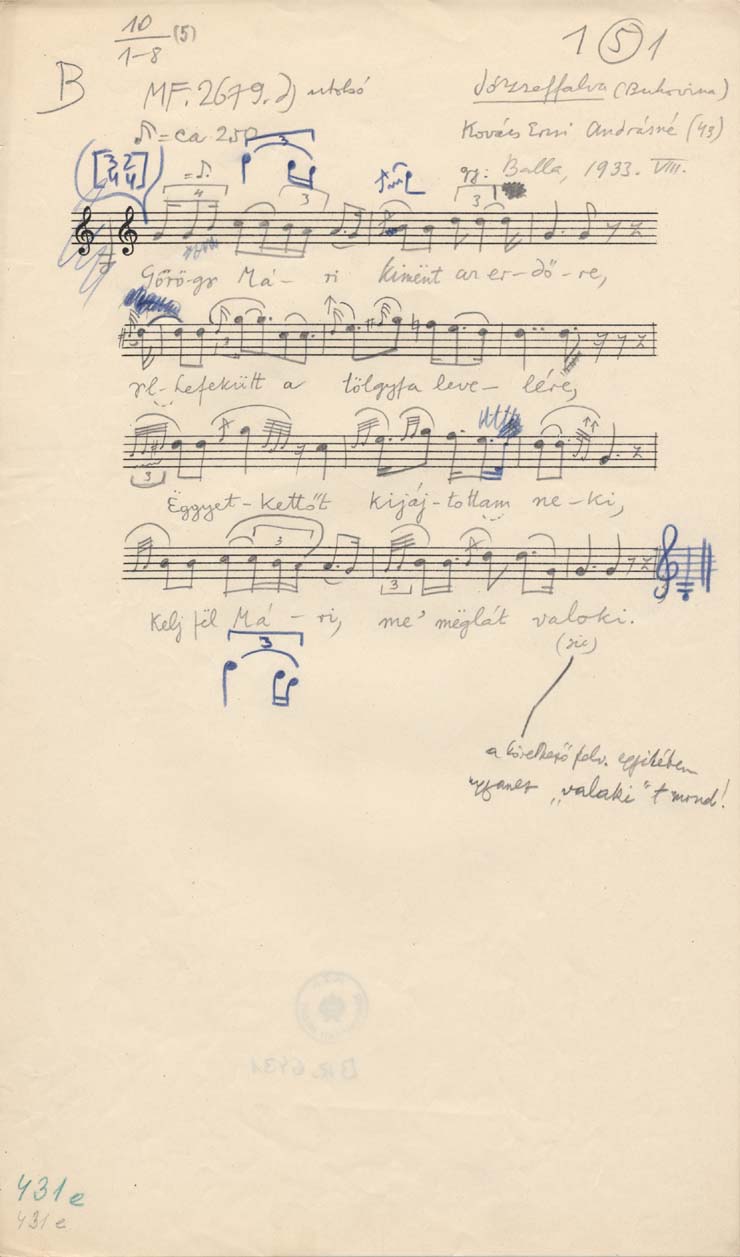 10
1-8 (5)
1 5 1
B
MF. 2679. d) utolsó
Józseffalva (Bukovina)
♪ = ca 250
Kovács Erzsi Andrásné (43)
gy: Balla, 1933. VIII.
3 2
4 4
3
= ♪.
4
3
3
Görög Má- ri kimënt az er- dő- re,
3
lefekütt a tölgyfa leve- lére,
3
Ëggyet- kettőt kijáj- tottam ne- ki,
3
3
Kelj fël Má- ri, me' mëglát valoki.
(sic)
3
a következő felv. egyikében
ugyanez „valaki"-t mond!
BR. 6431
431 e
431 e